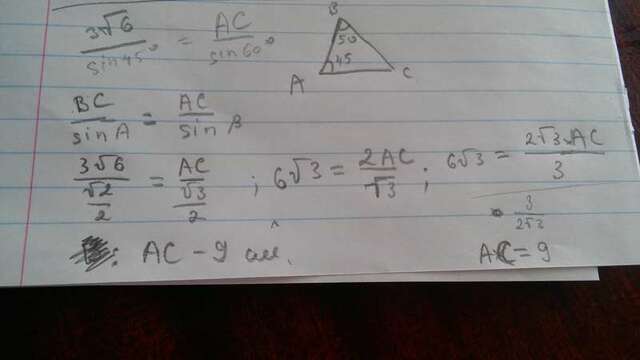 3√6/sin45° = AC/sin60°
B
50
45
A
C
BC/sinA = AC/sinB
3√6/(√2/2) = AC/(√3/2) ; 6√3 = 2AC/√3 ; 6√3 = 2√3·AC/3
· 3/2√3
: AC - 9 см.
AC = 9